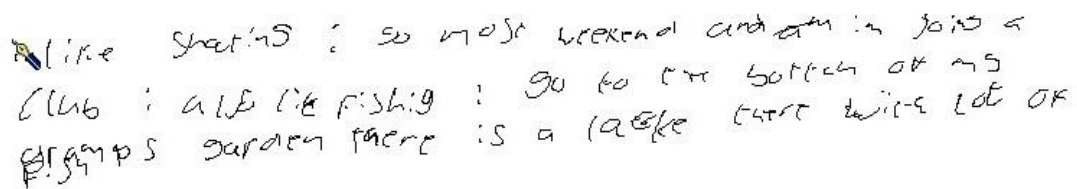 i like shooting i go most weekend and am in join a
club i also like fishig i go to the bottem of my
gramps garden there is a lake there with lot of
fish